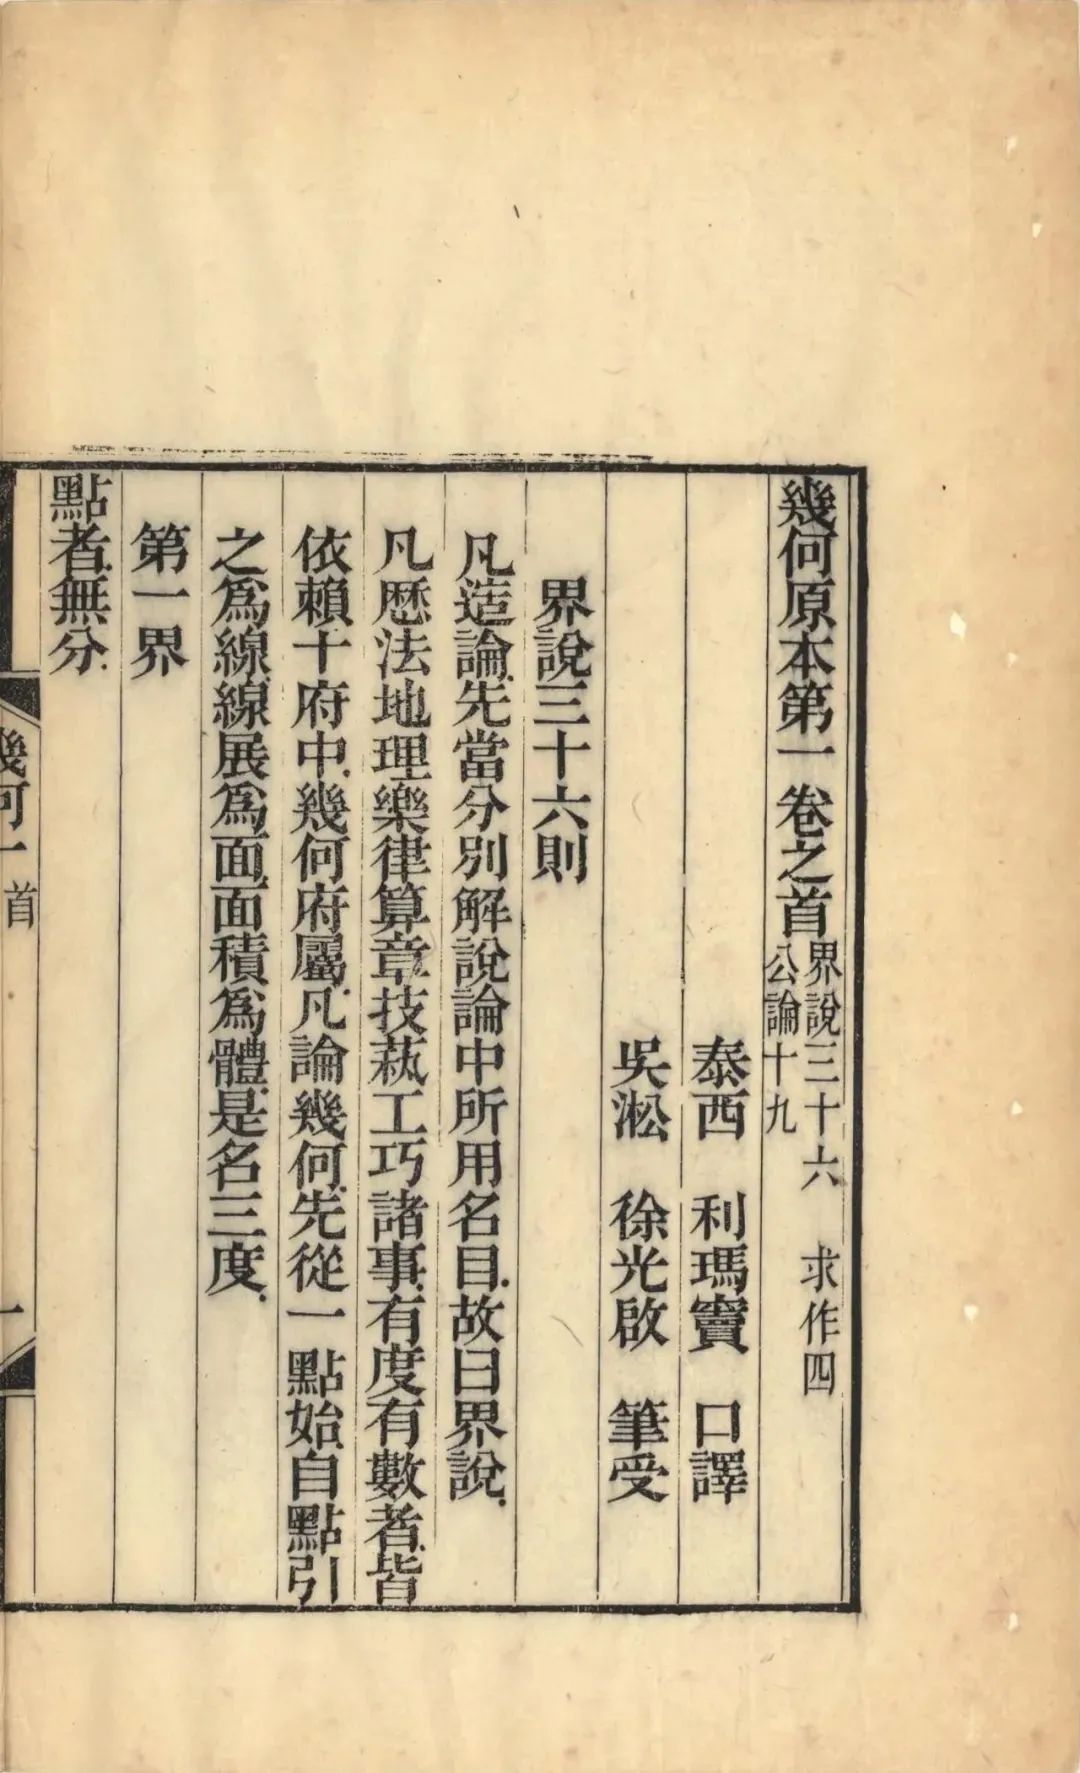 幾何原本第一卷之首
界說三十六 求作四
公論十九
泰西 利瑪竇 口譯
吳淞 徐光啟 筆受
界說三十六則
凡造論.先當分別解說論中所用名目.故曰界說.
凡厯法地理樂律算章技萟工巧諸事.有度有數者.皆
依賴十府中.幾何府屬.凡論幾何.先從一點始.自點引
之爲線.線展爲面.面積爲體.是名三度.
第一界
點者.無分.
幾何一 首
一